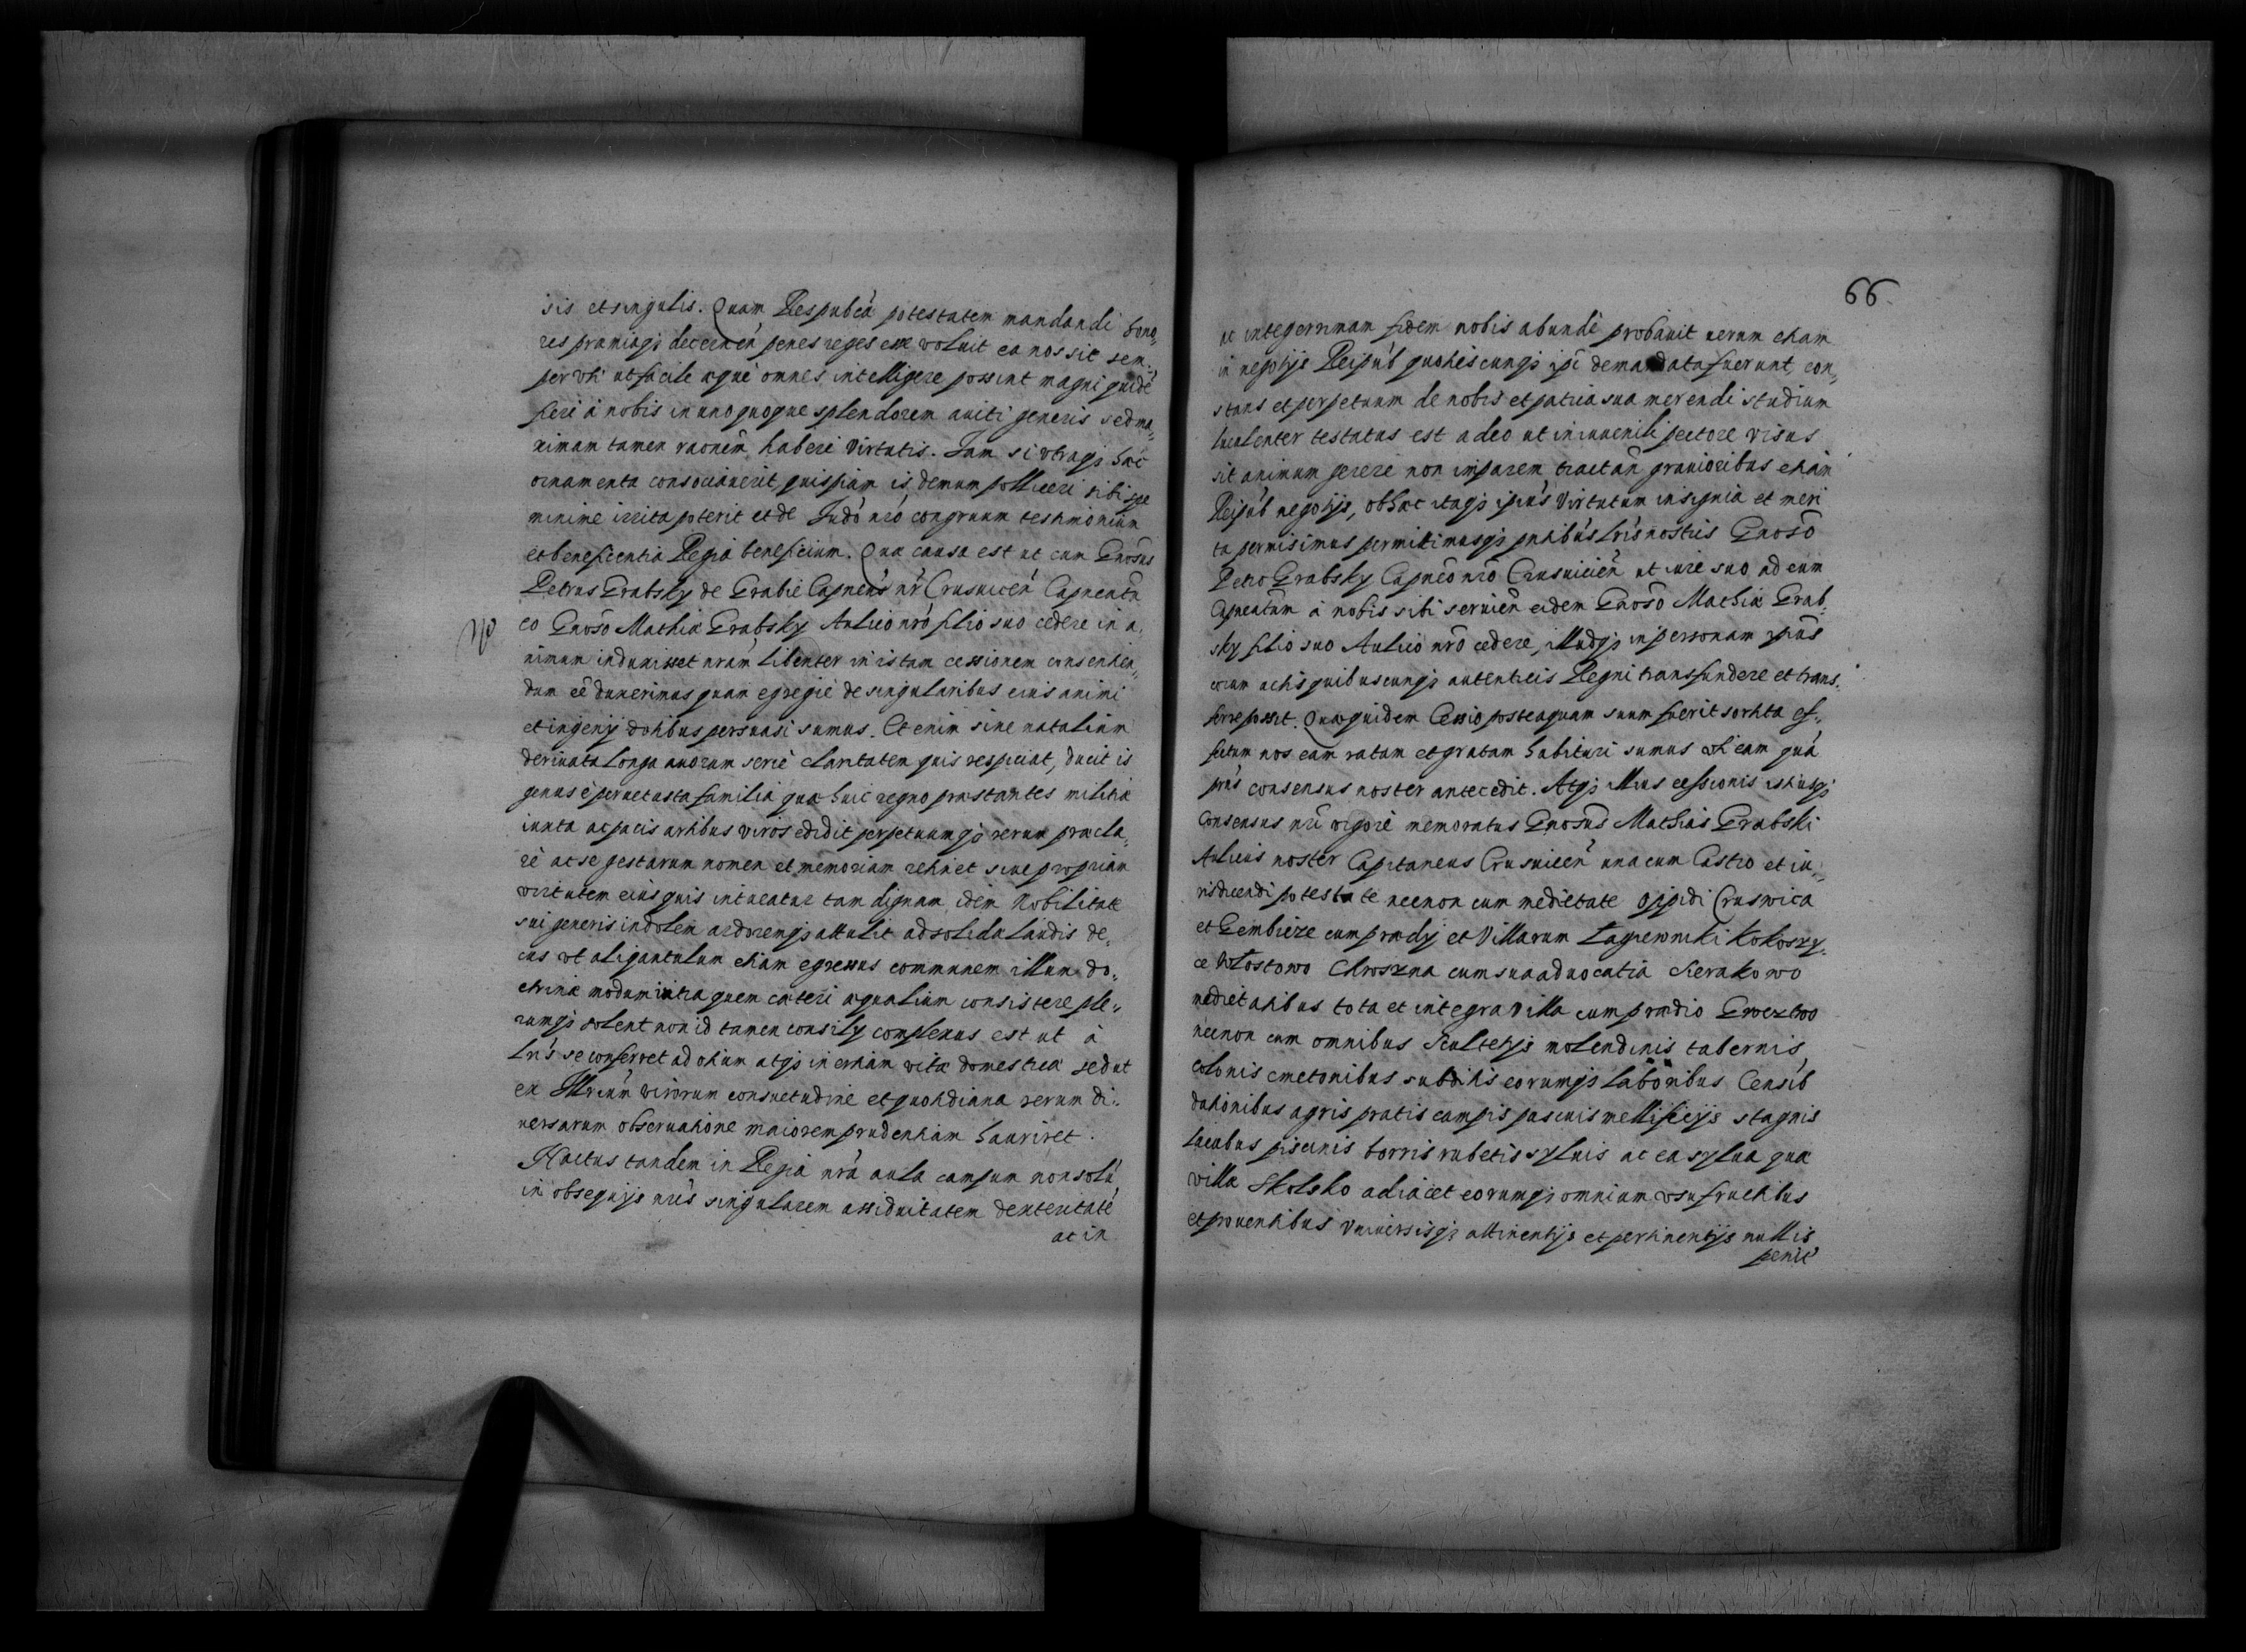 sis et singulis. Quam Respubca potestatem mandandi hono,
res pramiaqz decernen penes reges esse voluit ea nos sic sem,
per uti ut facile aque omnes intelligere possint magni quide
fieri a nobis in uno quoque splendorem aviti generis sed ma,
ximam tamen raonem haberi Virtutis. Jam si utraqz hac
ornamenta consociauerit quispiam is demum polliceri sibi spe
minime irrita poterit et de Judo nro congruum testimonium
et beneficentia Regia beneficium. Qua causa est ut cum Gnosus
Petrus Grabsky de Grabie Capneus nr Crusuicen Capneatu
eo Gnoso Mathia Grabsky Aulico nro filio suo cedere in a,
nimum induxisset nram libenter in istam cessionem consentien,
dum ee duxerimus quam egregie de singularibus eius animi
et ingenij dotibus persuasi sumus. Et enim siue natalium
deriuata longa auorum serie claritatem quis respiciat, ducit is
genus e peruetusta familia qua huic regno prastantes militia
iuxta ac pacis artibus viros edidit perpetuumqz rerum praecla,
re ac se gestarum nomen et memoriam retinet siue propriam
virtutem eius quis intueatur tam dignam idem Nobilitate
sui generis indolem ardoremqz attulit ad solida laudis de,
cus ut aligantulum etiam egressus communem illum do,
ctrina modum intra quem cateri aqualium consistere ple,
rumqz solent non id tamen consily complexus est ut a
Lris se conferret ad otium atqz inertiam vita domestica sed ut
ex Illrium virorum consuetudine et quotidiana rerum di,
uersarum obseruatione maiorem prudentiam hauriret.
Nactus tandem in Regia nra aula campum non solu
in obsequijs nris singularem assiduitatem dexteritate
ac in
66
ac integerrimam fidem nobis abunde probauit uerum etiam
in negotijs Reipub quotiescunqz ipi demandata fuerunt, con,
stans et perpetuum de nobis et patria sua merendi studium
luculenter testatus est adeo ut in iuuenili pectore visus
sit animum gerere non imparem tractan grauioribus etiam
Reipub negotijs, ob hac itaqz ipius Virtutum insignia et meri
ta permisimus permittimusqz pntibus lris nostris Gnoso
Petro Grabsky Capneo nro Crusuicien ut iure suo ad eum
Capneatum a nobis sibi seruien eidem Gnoso Mathia Grab,
sky filio suo Aulico nro cedere, illudqz in personam ipius
coram actis quibuscunqz autenticis Regni transfundere et trans,
ferre possit. Qua quidem Cessio posteaquam suum fuerit sortita ef,
fectum nos eam ratam et gratam habituri sumus uti eam qua
prius consensus noster antecedit. Atqz illius cessionis istiusqz
Consensus nri vigore memoratus Gnosus Mathias Grabski
Aulicus noster Capitaneus Crusuicen una cum Castro et iu,
risdicendi potestate necnon cum medietate oppidi Cruswica
et Gembieze cum pradij et Villarum Łagiewniki Kokoszy,
ce Włostowo Chroszna cum sua aduocatia Sierakowo
medietatibus tota et integra Villa cum pradio Grocztwo
necnon cum omnibus Scultetijs molendinis tabernis,
colonis cmetonibus subditis eorumqz laboribus Censib
dationibus agris pratis campis pascuis mellificijs stagnis
lacubus piscinis borris rubetis syluis ac ea sylua qua
villa Skolsko adiacet eorumqz omnium usufructibus
et prouentibus Vniuersisqz attinentijs et pertinentijs nullis
penit